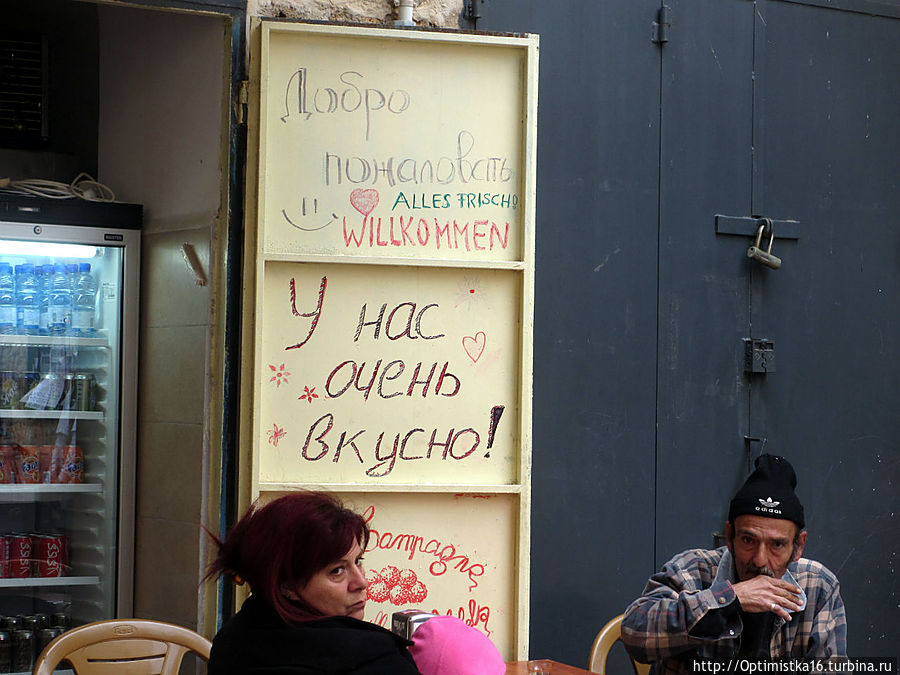 Добро
пожаловать
ALLES FRISCH!
WILLKOMMEN
У нас
очень
вкусно!
adidas
http://Optimistka16.turbina.ru